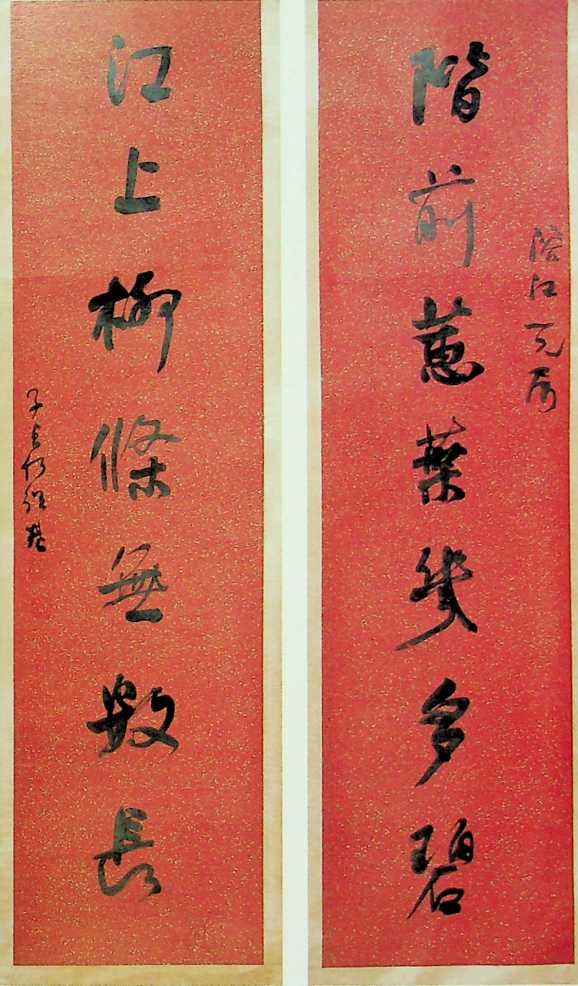 階前蕙葉幾多碧
江上柳條無數長
子貞何紹基